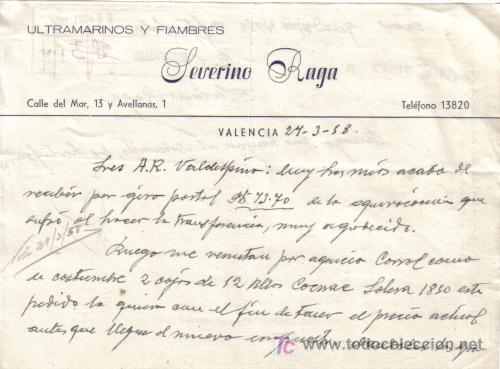 ULTRAMARINOS Y FIAMBRES
Severino Raga
Calle del Mar, 13 y Avellanas, 1
Teléfono 13820
VALENCIA 27-3-58.
Sres A.R. Valdespino: Muy Sres mios acabo de
recibir por giro postal Pts 73.70 de la equivocación que
sufrí, al hacer la transferencia, muy agradecido.
Ruego me remitan por agencia Corral como
de costumbre 2 cajas de 12 Bllas Coñac Solera 1850 este
pedido lo quiero con el fin de tener el precio actual
antes que llegue el nuevo impuesto
tc www.todocoleccion.net